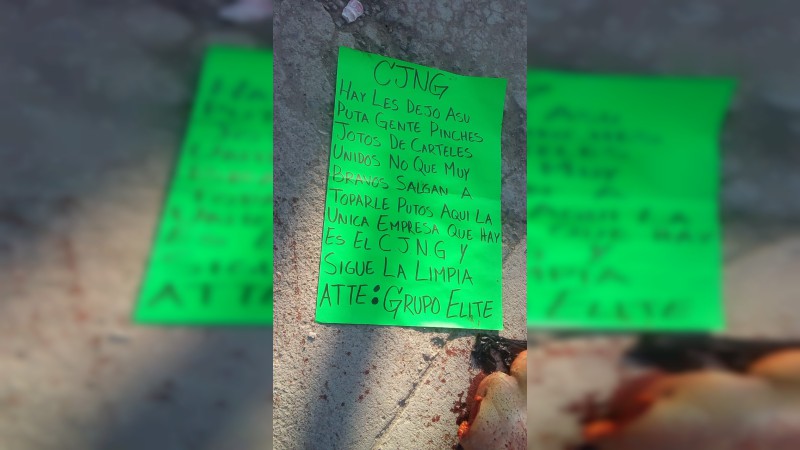 CJNG
HAY LES DEJO ASU
PUTA GENTE PINCHES
JOTOS DE CARTELES
UNIDOS NO QUE MUY
BRAVOS SALGAN A
TOPARLE PUTOS AQUI LA
UNICA EMPRESA QUE HAY
ES EL CJNG Y
SIGUE LA LIMPIA
ATTE: GRUPO ELITE